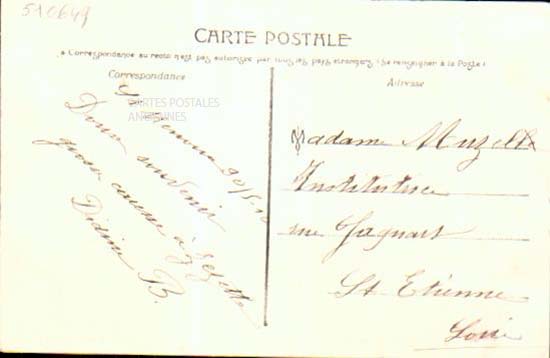 510649
CARTE POSTALE
La Correspondance au recto n'est pas autorisée par tous les pays étrangers (Se renseigner à la Poste)
Correspondance
CARTES POSTALES
ANCIENNES
20/5
Doux souvenir
grosse caresse à
Didine B.
Adresse
Madame Muzelle
Institutrice
rue Jacquart
St Etienne
Loire